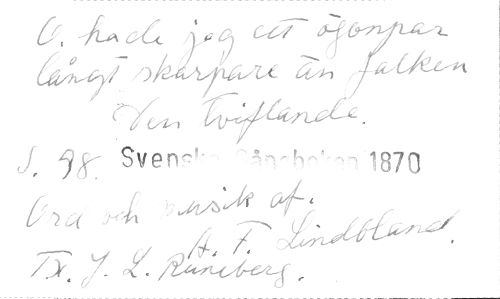 O. hade jag ett ögonpar
långt skarpare än falken
Den Tviflande.
S. 98. Svenska Sångboken 1870
Ord och musik af.
A. F. Lindbland.
Tx. J. L. Runeberg.